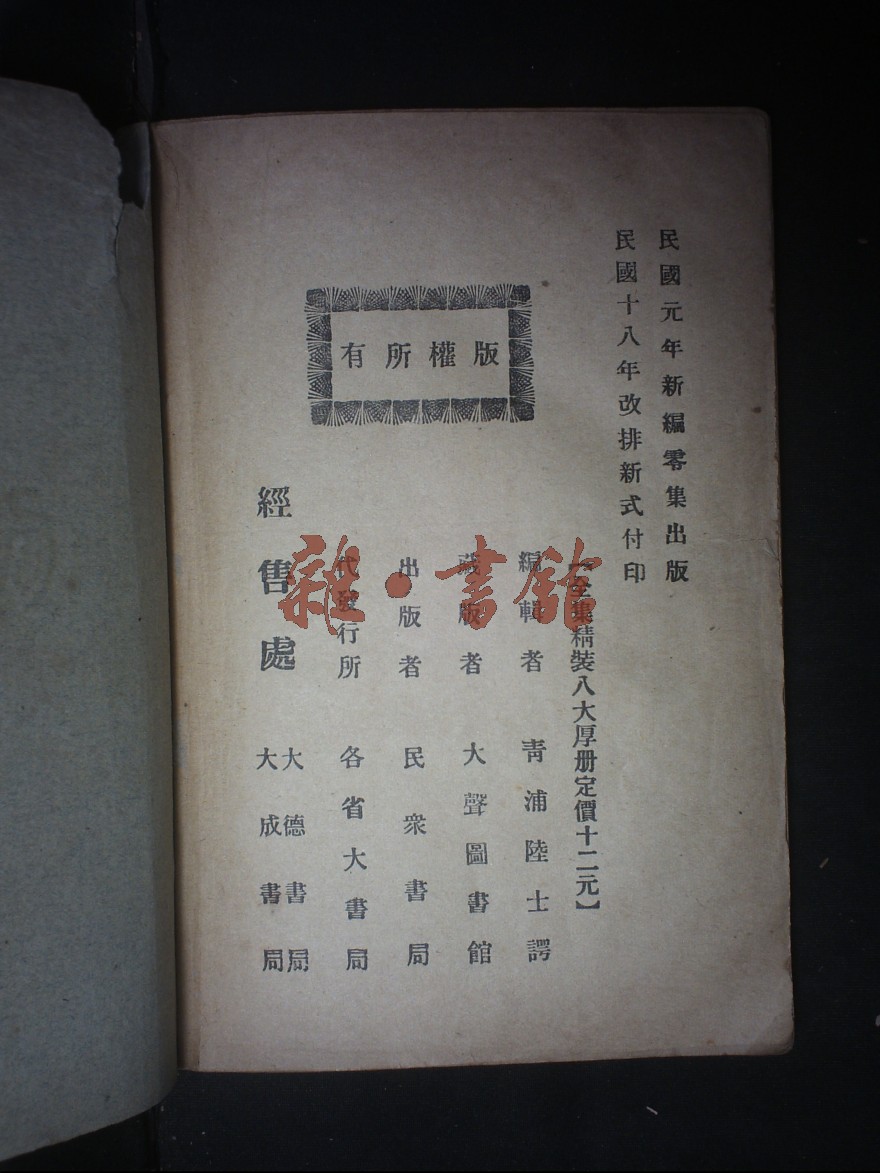 民國元年新編零集出版
民國十八年改排新式付印
【全集精裝八大厚册定價十二元】
版權所有
編輯者 靑浦陸士諤
藏版者 大聲圖書館
出版者 民衆書局
代發行所 各省大書局
經售處
大德書局
大成書局
雜·書館